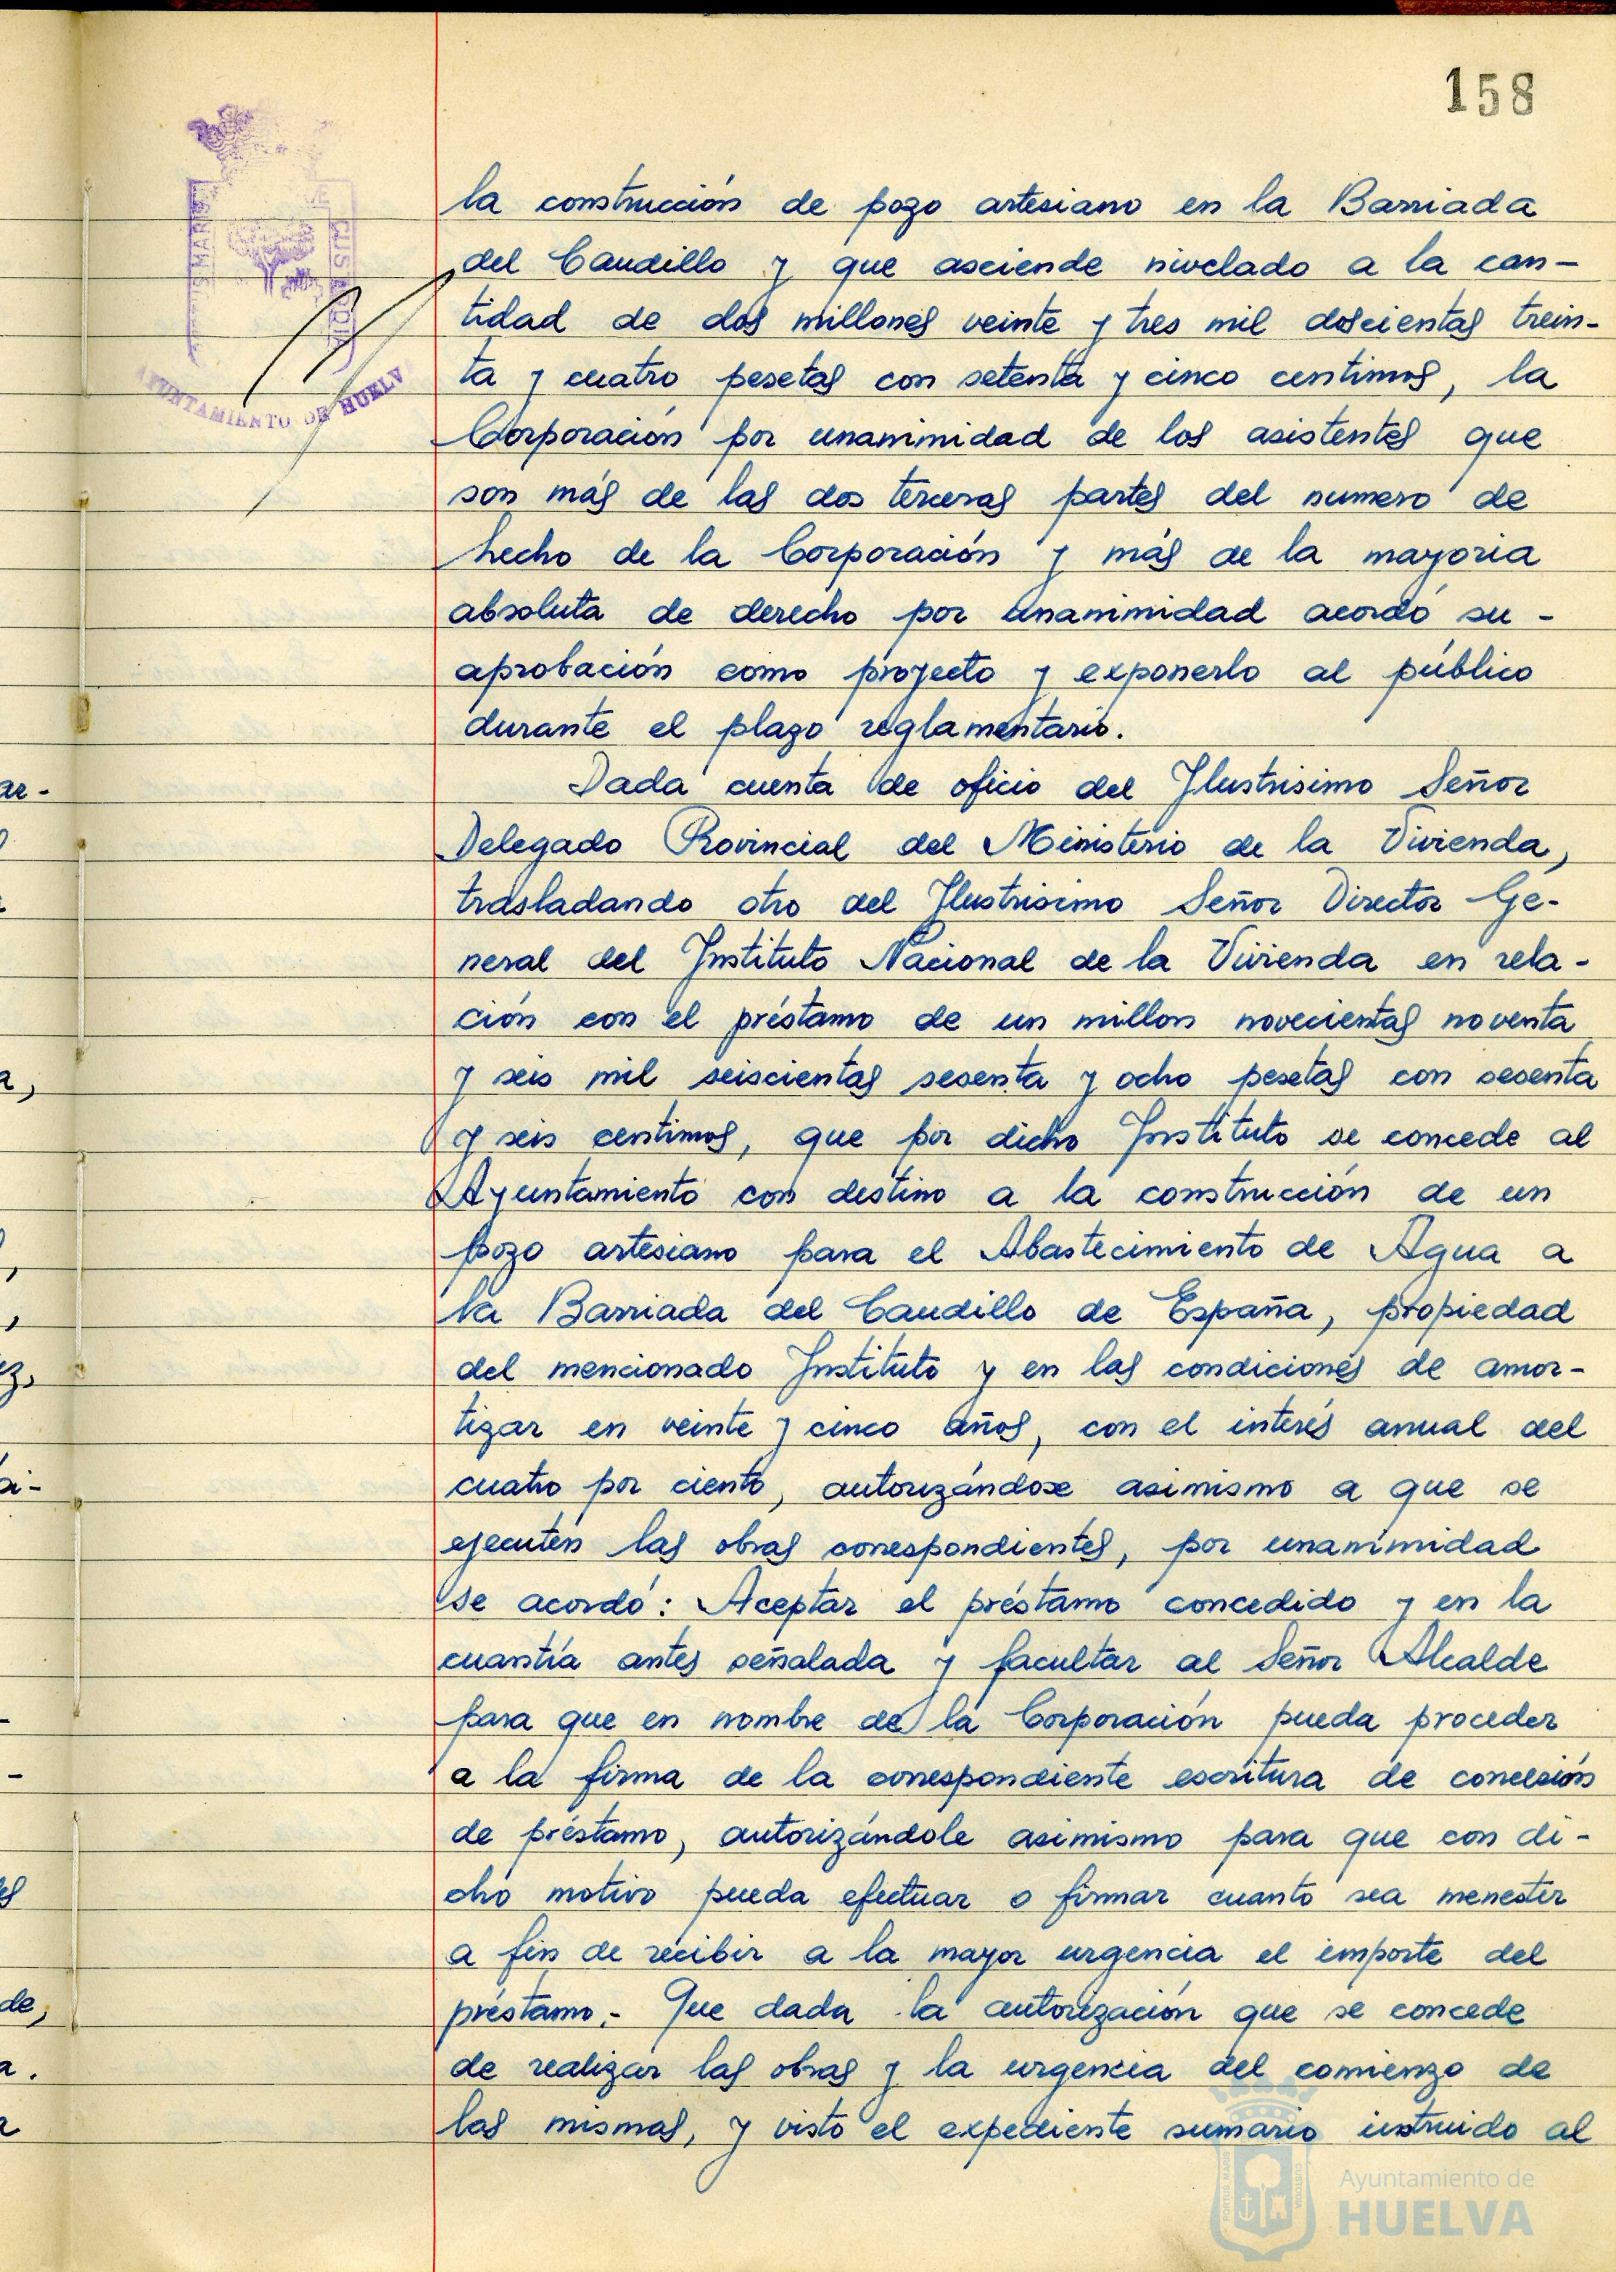 158
la construcción de pozo artesiano en la Barriada
del Caudillo y que asciende nivelado a la can-
tidad de dos millones veinte y tres mil doscientas trein-
ta y cuatro pesetas con setenta y cinco centimos, la
Corporación por unanimidad de los asistentes que
son más de las dos terceras partes del numero de
hecho de la Corporación y más de la mayoria
absoluta de derecho por unanimidad acordó su -
aprobación como proyecto y exponerlo al público
durante el plazo reglamentario.
Dada cuenta de oficio del Ilustrisimo Señor
Delegado Provincial del Ministerio de la Vivienda,
trasladando otro del Ilustrisimo Señor Director Ge-
neral del Instituto Nacional de la Vivienda en rela-
ción con el préstamo de un millon novecientas noventa
y seis mil seiscientas sesenta y ocho pesetas con sesenta
y seis centimos, que por dicho Instituto se concede al
Ayuntamiento con destino a la construcción de un
pozo artesiano para el Abastecimiento de Agua a
la Barriada del Caudillo de España, propiedad
del mencionado Instituto y en las condiciones de amor-
tizar en veinte y cinco años, con el interés anual del
cuatro por ciento, autorizándose asimismo a que se
ejecuten las obras correspondientes, por unanimidad
se acordó: Aceptar el préstamo concedido y en la
cuantía antes señalada y facultar al Señor Alcalde
para que en nombre de la Corporación pueda proceder
a la firma de la correspondiente escritura de concesión
de préstamo, autorizándole asimismo para que con di-
cho motivo pueda efectuar o firmar cuanto sea menester
a fin de recibir a la mayor urgencia el importe del
préstamo.- Que dada la autorización que se concede
de realizar las obras y la urgencia del comienzo de
las mismas, y visto el expediente sumario instruido al
AYUNTAMIENTO DE HUELV
Ayuntamiento de
HUELVA